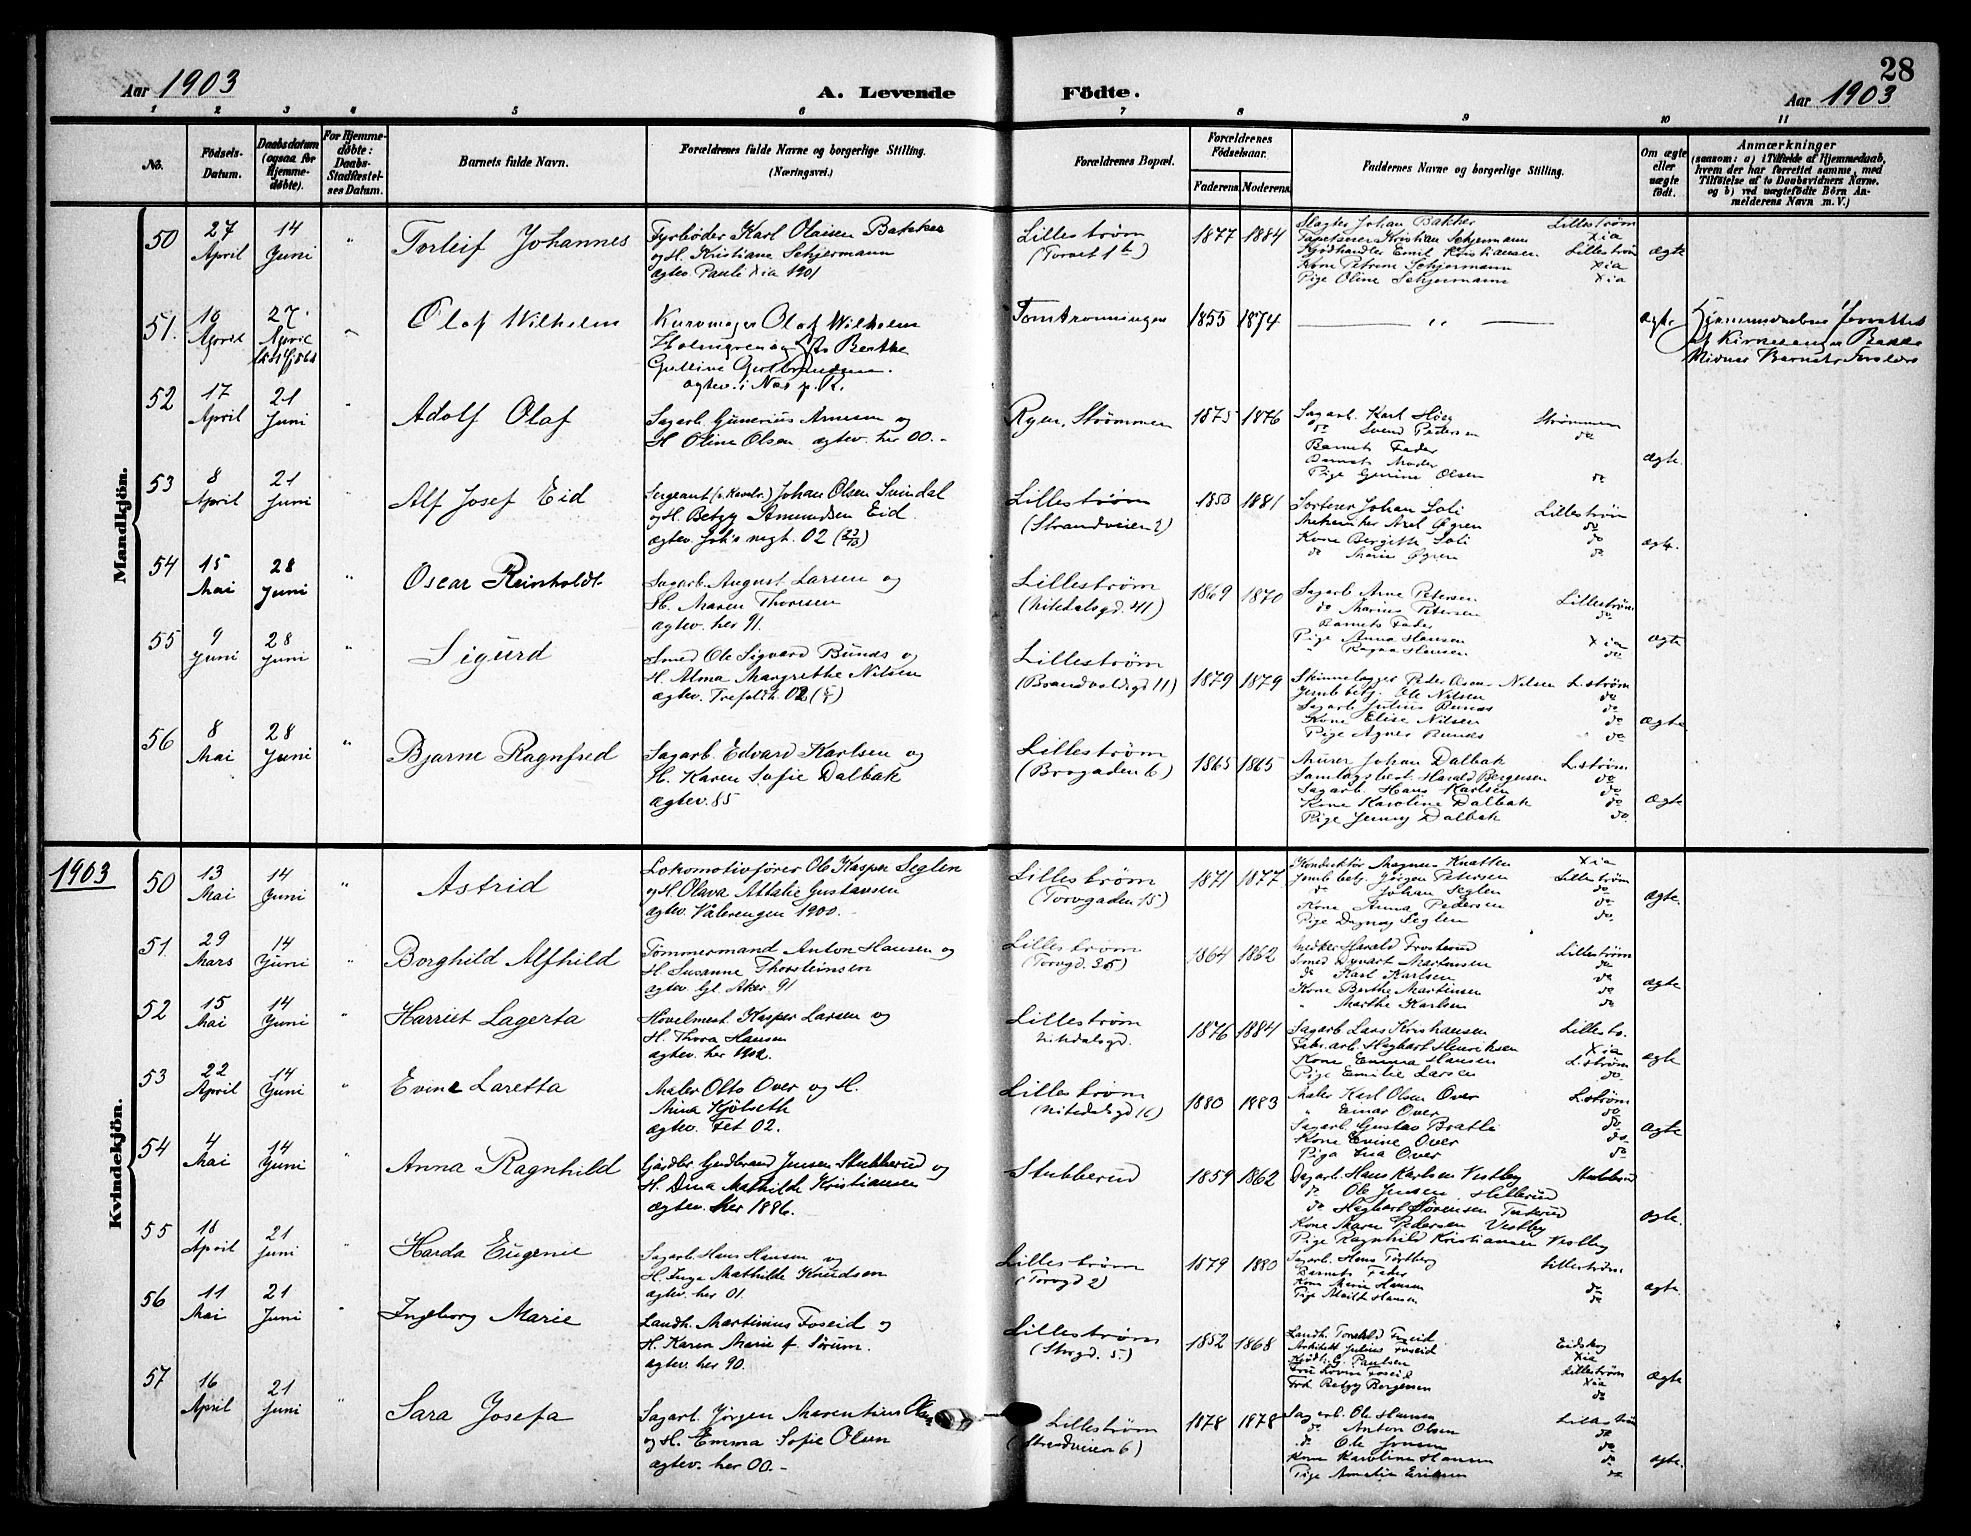 28
Aar 1903
A. Levende Födte.
Aar 1903
1 2 3 4 5 6 7 8 9 10 11
No.
Födsels-Datum.
Daabsdatum (ogsaa for Hjemmedøbte).
For Hjemmedøbte: Daabs-Stadfæstelses Datum.
Barnets fulde Navn.
Forældrenes fulde Navne og borgerlige Stilling.
(Næringsvei.)
Forældrenes Bopæl.
Forældrenes Födselsaar.
Faderens Moderens
Faddernes Navne og borgerlige Stilling.
Om ægte eller uægte födt.
Anmærkninger
(saasom: a) i Tilfælde af Hjemmedaab,
hvem der har forrettet samme, med
Tilföielse af to Daabsvidners Navne.
og b) ved uægtefödte Börn An-
melderens Navn m. V.)
Mandkjön.
50 27 April 14 Juni " Torleif Johannes
Fyrbøder Karl Olaisen Bakke
og H. Kristiane Schjermann
ægtev. Pauli xia 1901
Lillestrøm
(Torvet 1)
1877 1884
Slagter Johan Bakke Lillestrøm
Tapetserer Kristian Schjermann Xia
Emil Kristiansen Lillestrøm
Kone Petrine Schjermann Xia
Pige Oline Schjermann Xia
ægte
51. April 27 April Olaf Wilhelm
Kurvmager Olaf Wilhelm
Holmgren og H. Berthe
Gulline Gulbrandsen.
ægtev. i Nes p. R.
Tomtrønningen
1855 1874
— " —
ægte
52 17 April 21 Juni " Adolf Olaf
Sagarb. Gunerius Arnesen og
H. Oline Olsen ægtev. her 00.-
Ryen, Strømmen
1875 1876
Sagarb. Karl Høeg Strømmen
do Svend Pedersen do
Barnets Fader
Barnets Moder
Pige Gunine Olsen do
ægte.
53 8 April 21 Juni " Alf Josef Eid
Sergeant Johan Olsen Svindal
og H. Betzy Amundsen Eid.
ægtev. Joh's mgt. 02
Lillestrøm
(Strandveien 2)
1853 1881
Sorterer Johan Soli Lillestrøm
Axel Øgren do
Kone Bergitte Soli do
do Marie Øgren do
ægte.
54 15 Mai 28 Juni " Oscar Reinholdt
Sagarb. August Larsen og
H. Maren Thoresen
ægtev. her 91.
Lillestrøm
(Nitedalsgd. 41)
1869 1870
Sagarb. Arne Petersen Lillestrøm
do Marius Petersen do
Barnets Fader
Pige Anna Hansen Xia
" Ragna Hansen do
ægte
55 9 Juni 28 Juni " Sigurd
Smed Ole Sigvard Bunes og
H. Alma Margrethe Nilsen
ægtev. Trefoldh. 02
Lillestrøm
(Brandvoldsgd 11)
1879 1879
Peder Olsen Nilsen L.strøm
Jernb.betj. Ole Nilsen do
Sagarb. Julius Bunes do
Kone Elise Nilsen do
Pige Agnes Bunes do
ægte
56 8 Mai 28 Juni " Bjarne Ragnfred
Sagarb. Edvard Karlsen og
H. Karen Sofie Dalbak
ægtev. 85
Lillestrøm
(Brogaden 6)
1865 1865
Murer Johan Dalbak L.strøm
Samlagsbest. Harald Bergersen do
Sagarb. Hans Karlsen do
Kone Karoline Dalbak do
Pige Jenny Dalbak do.
ægte
1903
Kvindekjön.
50 13 Mai 14 Juni " Astrid
Lokomotivfører Ole Kasper Seglen
og H. Olava Attalie Gustavsen
ægtev. Vålerengen 1900.-
Lillestrøm
(Torvgaden 15)
1871 1877
Konduktør Magnus Knatten Xia
Jernb.betj. Jørgen Petersen Lillestrøm
do Johan Seglen do
Kone Anna Pedersen do
Pige Dagny Seglen do.
ægte.
51. 29 Mars 14 Juni " Borghild Alfhild
Tømmermand Anton Hansen og
H. Susanne Thorsteinsen
ægtev. Gl. Aker. 91
Lillestrøm
(Torvgd. 35)
1864 1862
Harald Frosterud Lillestrøm
Smed Martinsen do
do Karl Karlsen do
Kone Berthe Martinsen do
" Marthe Karlsen do
ægte
52 15 Mai 14 Juni " Harriet Lagerta
Høvelmest. Kasper Larsen og
H. Thora Hansen
ægtev. her 1902.
Lillestrøm
Nitedalsgd.
1876 1884
Sagarb. Lars Kristiansen Lillestr.
Fabr.arb. Hagbart Henriksen Xia
Kone Emma Hansen L.strøm
Pige Emilie Larsen do.
ægte
53 22 April 14 Juni " Evine Laretta
Maler Otto Over og H.
Mina Kjölseth
ægtev. Fet 02.
Lillestrøm
(Nitedalsgd 16)
1880 1883
Maler Karl Olsen Over L.strøm
" Einar Over do
Sagarb. Gustav Bratli do
Kone Evine Over do.
Pige Lua Over do
ægte
54 4 Mai 14 Juni " Anna Ragnhild
Gårdbr. Gudbrand Jensen Stubberud og
H. Dina Mathilde Kristiansen
ægtev. Aker 1886.
Stubberud
1859 1862
Dagarb. Hans Karlsen Vestby Stubberud
do Ole Jensen Hillerud
do Hagbart Sørensen
Kone Maren Pedersen Vestby
Pige Ragnhild Kristiansen Vestby
ægte.
55 18 April 21 Juni " Harda Eugenie
Sagarb. Hans Hansen og
H. Inga Mathilde Knudsen
ægtev. her 01.
Lillestrøm
(Torvgd 2)
1879 1880
Sagarb. Hans Torsberg Lillestrøm
Barnets Fader
Kone Marie Hansen do
Pige Hansen do
ægte.
56 11 Mai 21 Juni " Ingeborg Marie
Landh. Martinius Foseid og
H. Karen Marie f. Sørum.
ægtev. her 90.
Lillestrøm
(Storgd. 5.)
1852 1868
Landh. Torvald Foseid Eidskog
Arkitekt Julius Foseid Xia
G. Paulsen Lillestrøm
Fru Lovise Foseid Xia
Frk Betzy Bergersen do
ægte
57 16 April 21 Juni " Sara Josefa
Sagarb. Jørgen Marentius Olsen
og H. Emma Sofie Olsen
ægtev. her 00.-
Lillestrøm
(Strandveien 6)
1878 1878
Sagarb. Ole Hansen Lillestrøm
do. Anton Olsen do
do. Ole Jensen do
Kone Karoline Hansen do
Pige Amalie Eriksen do
ægte.